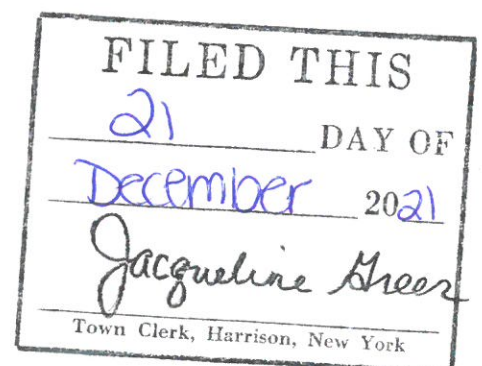 FILED THIS
21 DAY OF
December 2021
Jacqueline Greer
Town Clerk, Harrison, New York